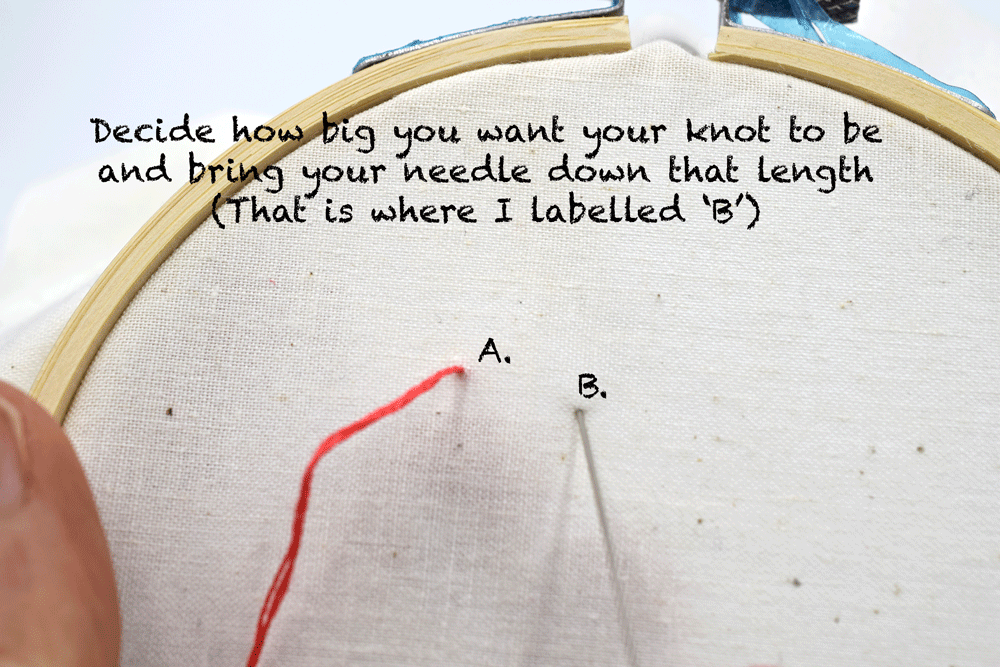 Decide how big you want your knot to be
and bring your needle down that length
(That is where I labelled ‘B’)
A.
B.